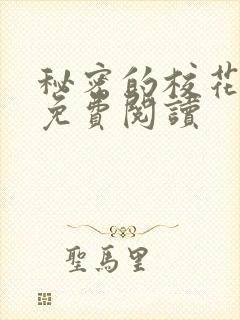 秘密的校花
免費閱讀
聖馬里